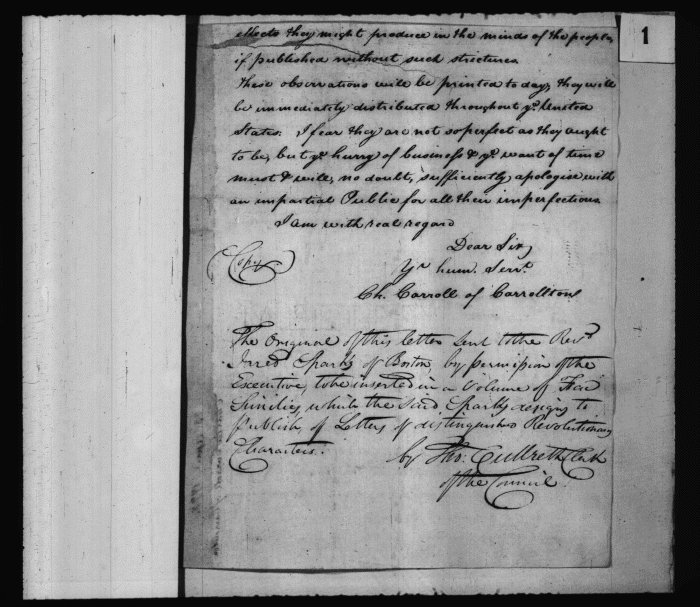 effects they might produce in the minds of the people,
if published without such strictures.
These observations will be printed to day, they will
be immediately distributed throughout ye. United
States. I fear they are not so perfect as they ought
to be, but ye. hurry of business & ye. want of time
must & will, no doubt, sufficiently apologise with
an impartial Public for all their imperfections.
I am with real regard
Dear Sir,
(Copy.)
Yr. hum. Servt.
Ch. Carroll of Carrollton
The Original of this letter sent to the Revd.
Jared Sparks of Boston, by permission of the
Executive, to be inserted in a Volume of Fac
Similies, which the said Sparks designs to
publish, of Letters of distinguished Revolutionary
Characters.
by Tho: Culbreth Clk
of the Council.
1